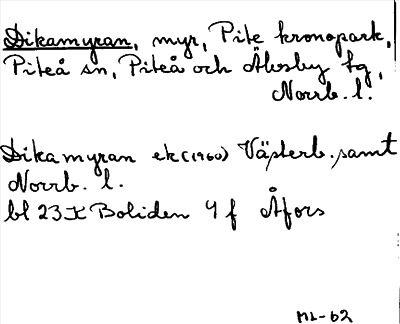 Dikamyran, myr, Pite kronopark,
Piteå sn, Piteå och Älvsby tg,
Norrb. l.
Dikamyran ek (1960) Västerb. samt
Norrb. l.
bl 23 K Boliden 9 f Åfors